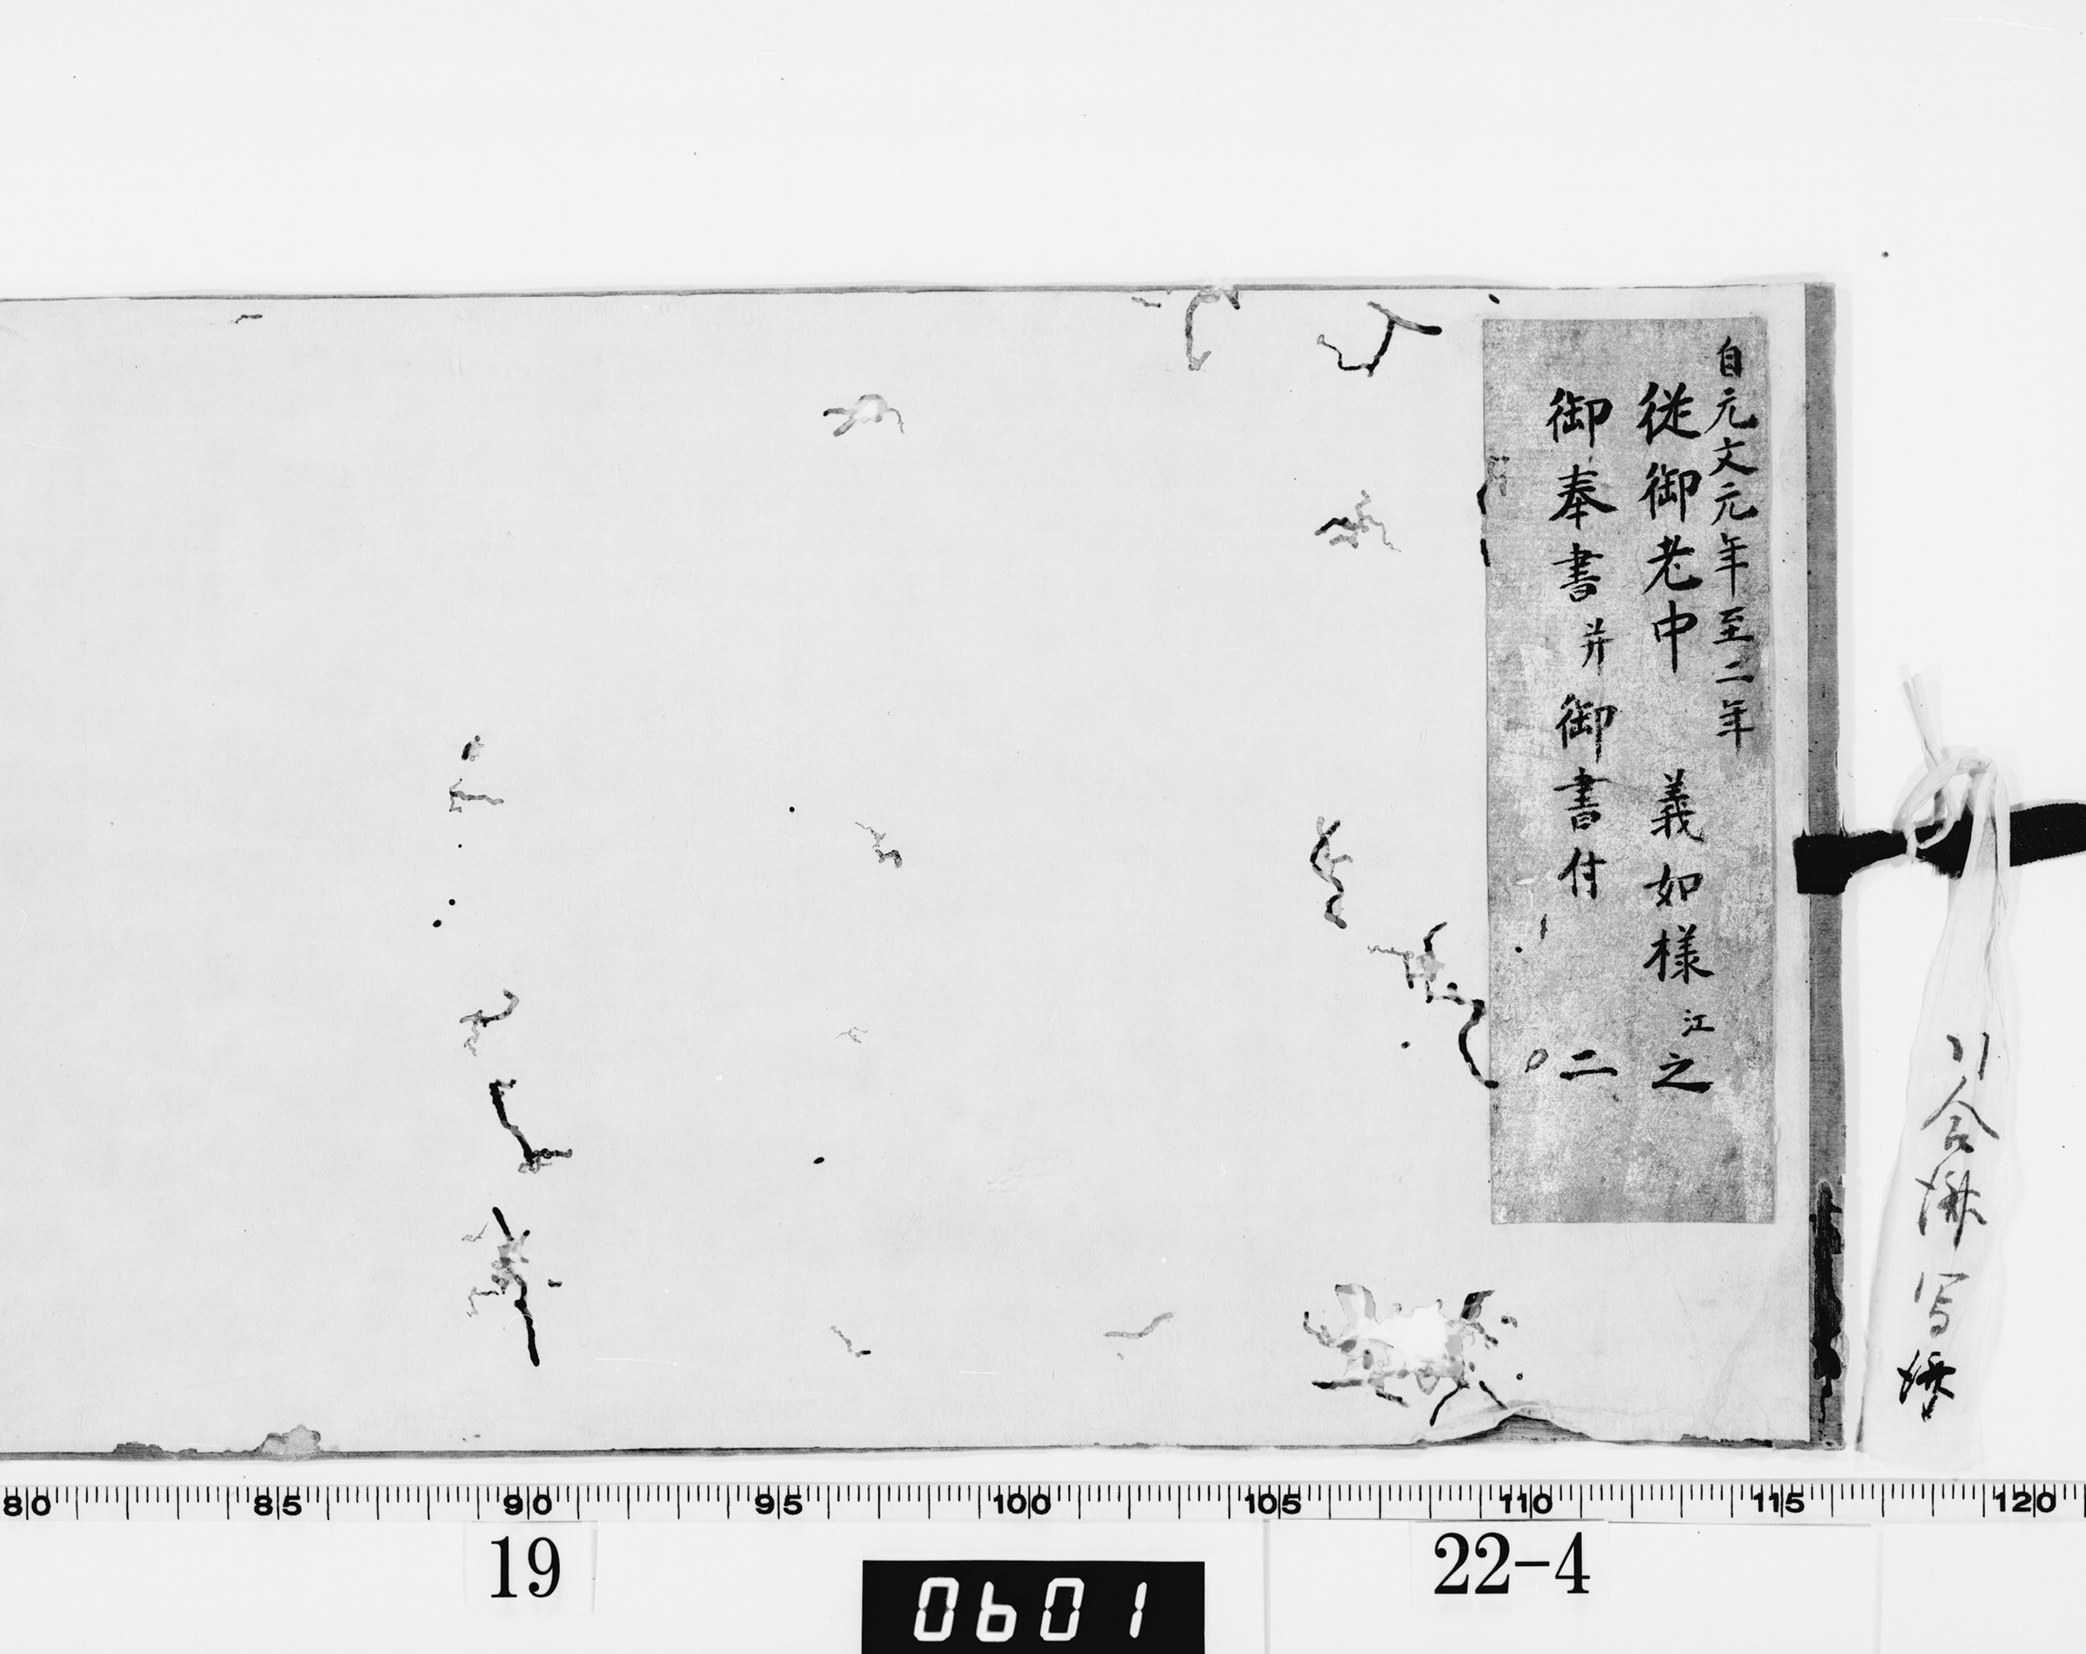 自元文元年至二年
従御老中　義如様江之
御奉書并御書付　二
川合
写
80 85 90 95 100 105 110 115 120
19
22-4
0601